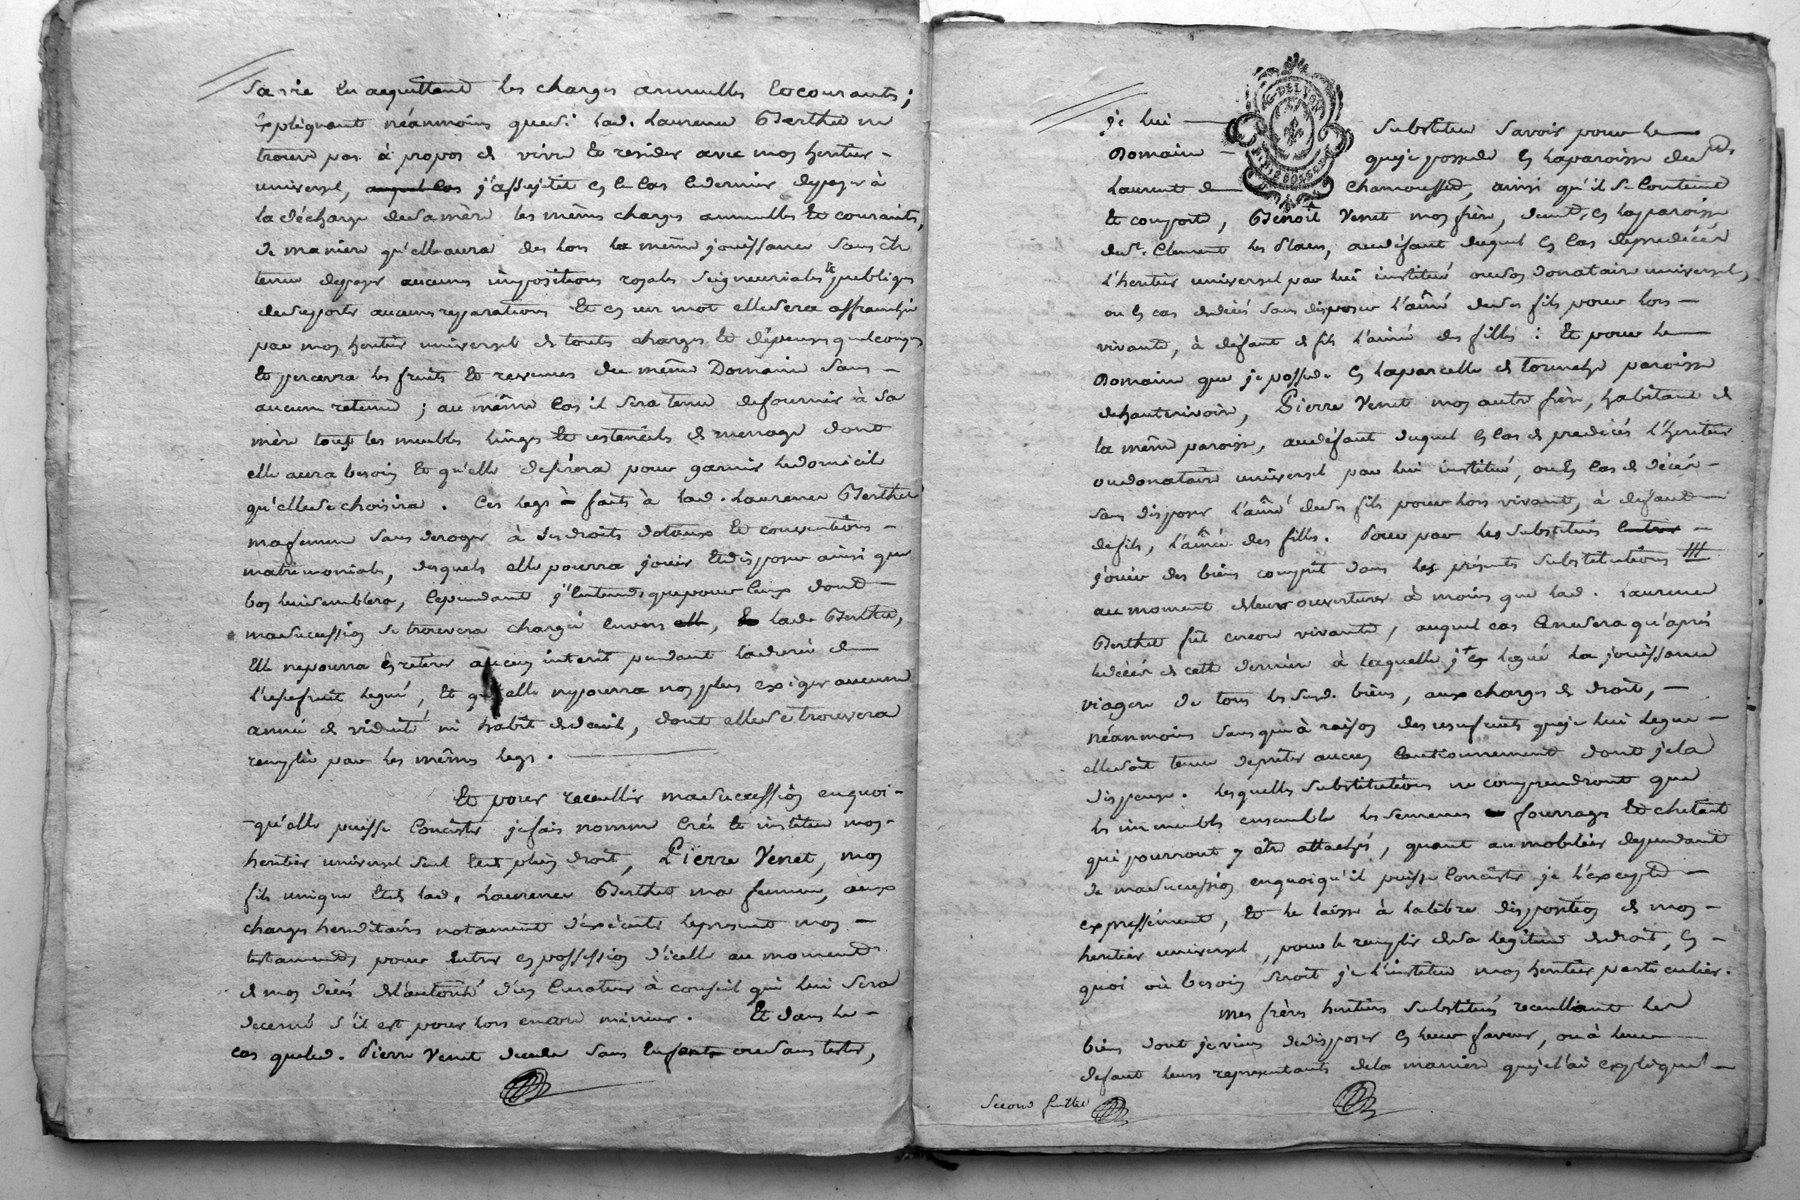 sa vie en acquittant les charges annuelles et courantes;
expliquant néanmoins que si lad. Laurence Berthet ne
trouve pas à propos de vivre et resider avec mon heritier
universel, auquel cas j'assujetit en ce cas ce dernier de payer à
la décharge de sa mère les mêmes charges annuelles et courantes,
de maniere qu'elle aura des lors la même jouissance sans être
tenue de payer aucunes impositions royales seigneuriales et publiques
de supporter aucunes reparations et en un mot elle sera affranchie
par mon heritier universel de toutes charges et dépenses quelconques
et percevra les fruits et revenus du même Domaine sans
aucune retenue; au même cas il sera tenu de fournir à sa
mère tous les meubles linges et ustenciles de menage dont
elle aura besoin et qu'elle desirera pour garnir le domicile
qu'elle se choisira. Ces legs faits à lad. Laurence Berthet
ma femme sans deroger à ses droits dotaux et conventions
matrimoniales, desquels elle pourra jouir et disposer ainsi que
bon lui semblera, cependant j'entends que pour ceux dont
ma succession se trouvera chargée envers elle, lade Berthet,
elle ne pourra en retirer aucun interêt pendant la durée de
l'usufruit legué, et qu'elle ne pourra non plus exiger aucune
année de viduité ni habit de deuil, dont elle se trouvera
remplie par les mêmes legs.
Et pour recueillir ma succession en quoi
qu'elle puisse consister je fais nomme crée et institue mon
heritier universel seul et de plein droit, Pierre Venet, mon
fils unique et de lad. Laurence Berthet ma femme, aux
charges hereditaires notament d'exécuter le present mon
testament, pour entrer en possession d'icelle au moment
de mon décés de l'autorité d'un curateur à conseil qui lui sera
decerné s'il est pour lors encore mineur. Et dans le
cas que led. Pierre Venet decede sans enfants ou sans tester,
G. DE LYON
je lui substitue savoir pour le
Domaine que je possede en la paroisse de St.
Laurent de Chamousset, ainsi qu'il se contient
et comporte, Benoît Venet mon frère, demt. en la paroisse
de St. Clement les Places, au défaut duquel en cas de predécés
l'heritier universel par lui institué ou son donataire universel,
ou en cas de décés sans disposer l'aîné de ses fils pour lors
vivant, à défaut de fils l'ainé des filles: et pour le
Domaine que je possede en la parcelle de paroisse
de hauterivoire, Pierre Venet mon autre frère, habitant de
la même paroisse, au défaut duquel en cas de predécés l'heritier
ou donataire universel par lui institué, ou en cas de décés
sans disposer l'aîné de ses fils pour lors vivant, à défaut
de fils, l'aînée des filles. Pour par les substitués entrer
jouir des biens compris dans les présentes substitutions
au moment de leurs ouvertures à moins que lad. Laurence
Berthet fût encore vivante, auquel cas ce ne sera qu'après
le décés de cette dernière à laquelle j'ai legué la jouissance
viagere de tous les susd. biens, aux charges de droit,
néanmoins sans qu'à raison des usufruits que je lui legue
elle soit tenue de prêter aucun cautionnement dont je la
dispense. lesquelles substitutions ne comprendront que
les immeubles ensemble les semences fourrages et cheptel
qui pourront y être attachés, quant au mobilier dependant
de ma succession en quoi qu'il puisse consister je l'excepte
expressément, et le laisse à la libre disposition de mon
heritier universel, pour le remplir de sa legitime de droit, en
quoi où besoin seroit je l'institue mon heritier particulier.
Mes frères heritiers substitués recueillant les
biens dont je viens de disposer en leur faveur, ou à leur
defaut leurs representants de la maniere que je l'ai expliqué
Second feuillet